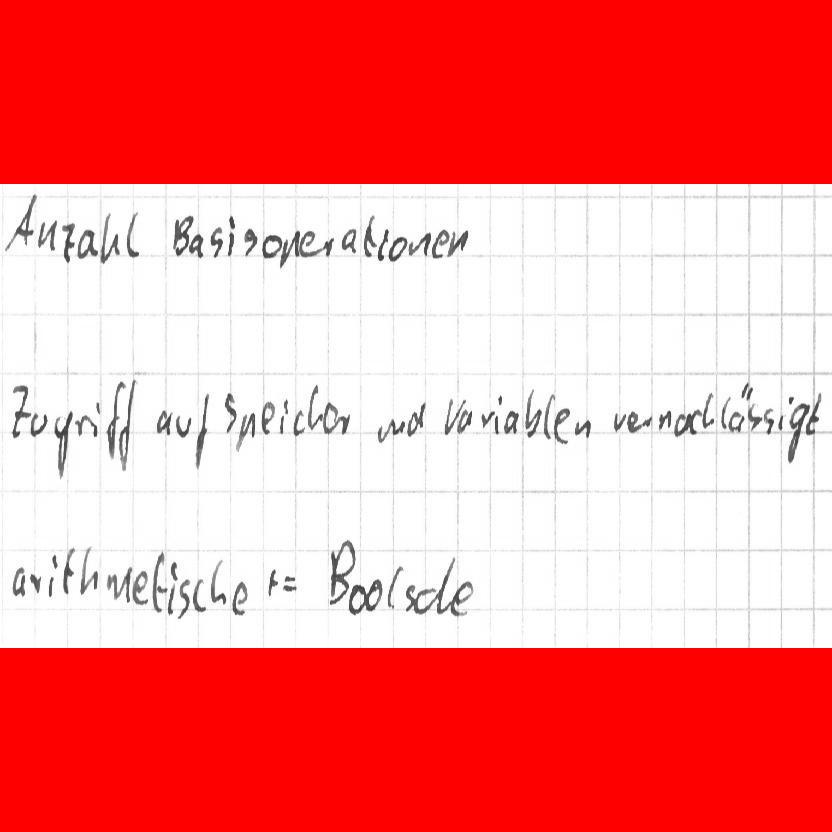 Anzahl Basisoperationen
Zugriff auf Speicher und Variablen vernachlässigt
arithmetische != Boolsche